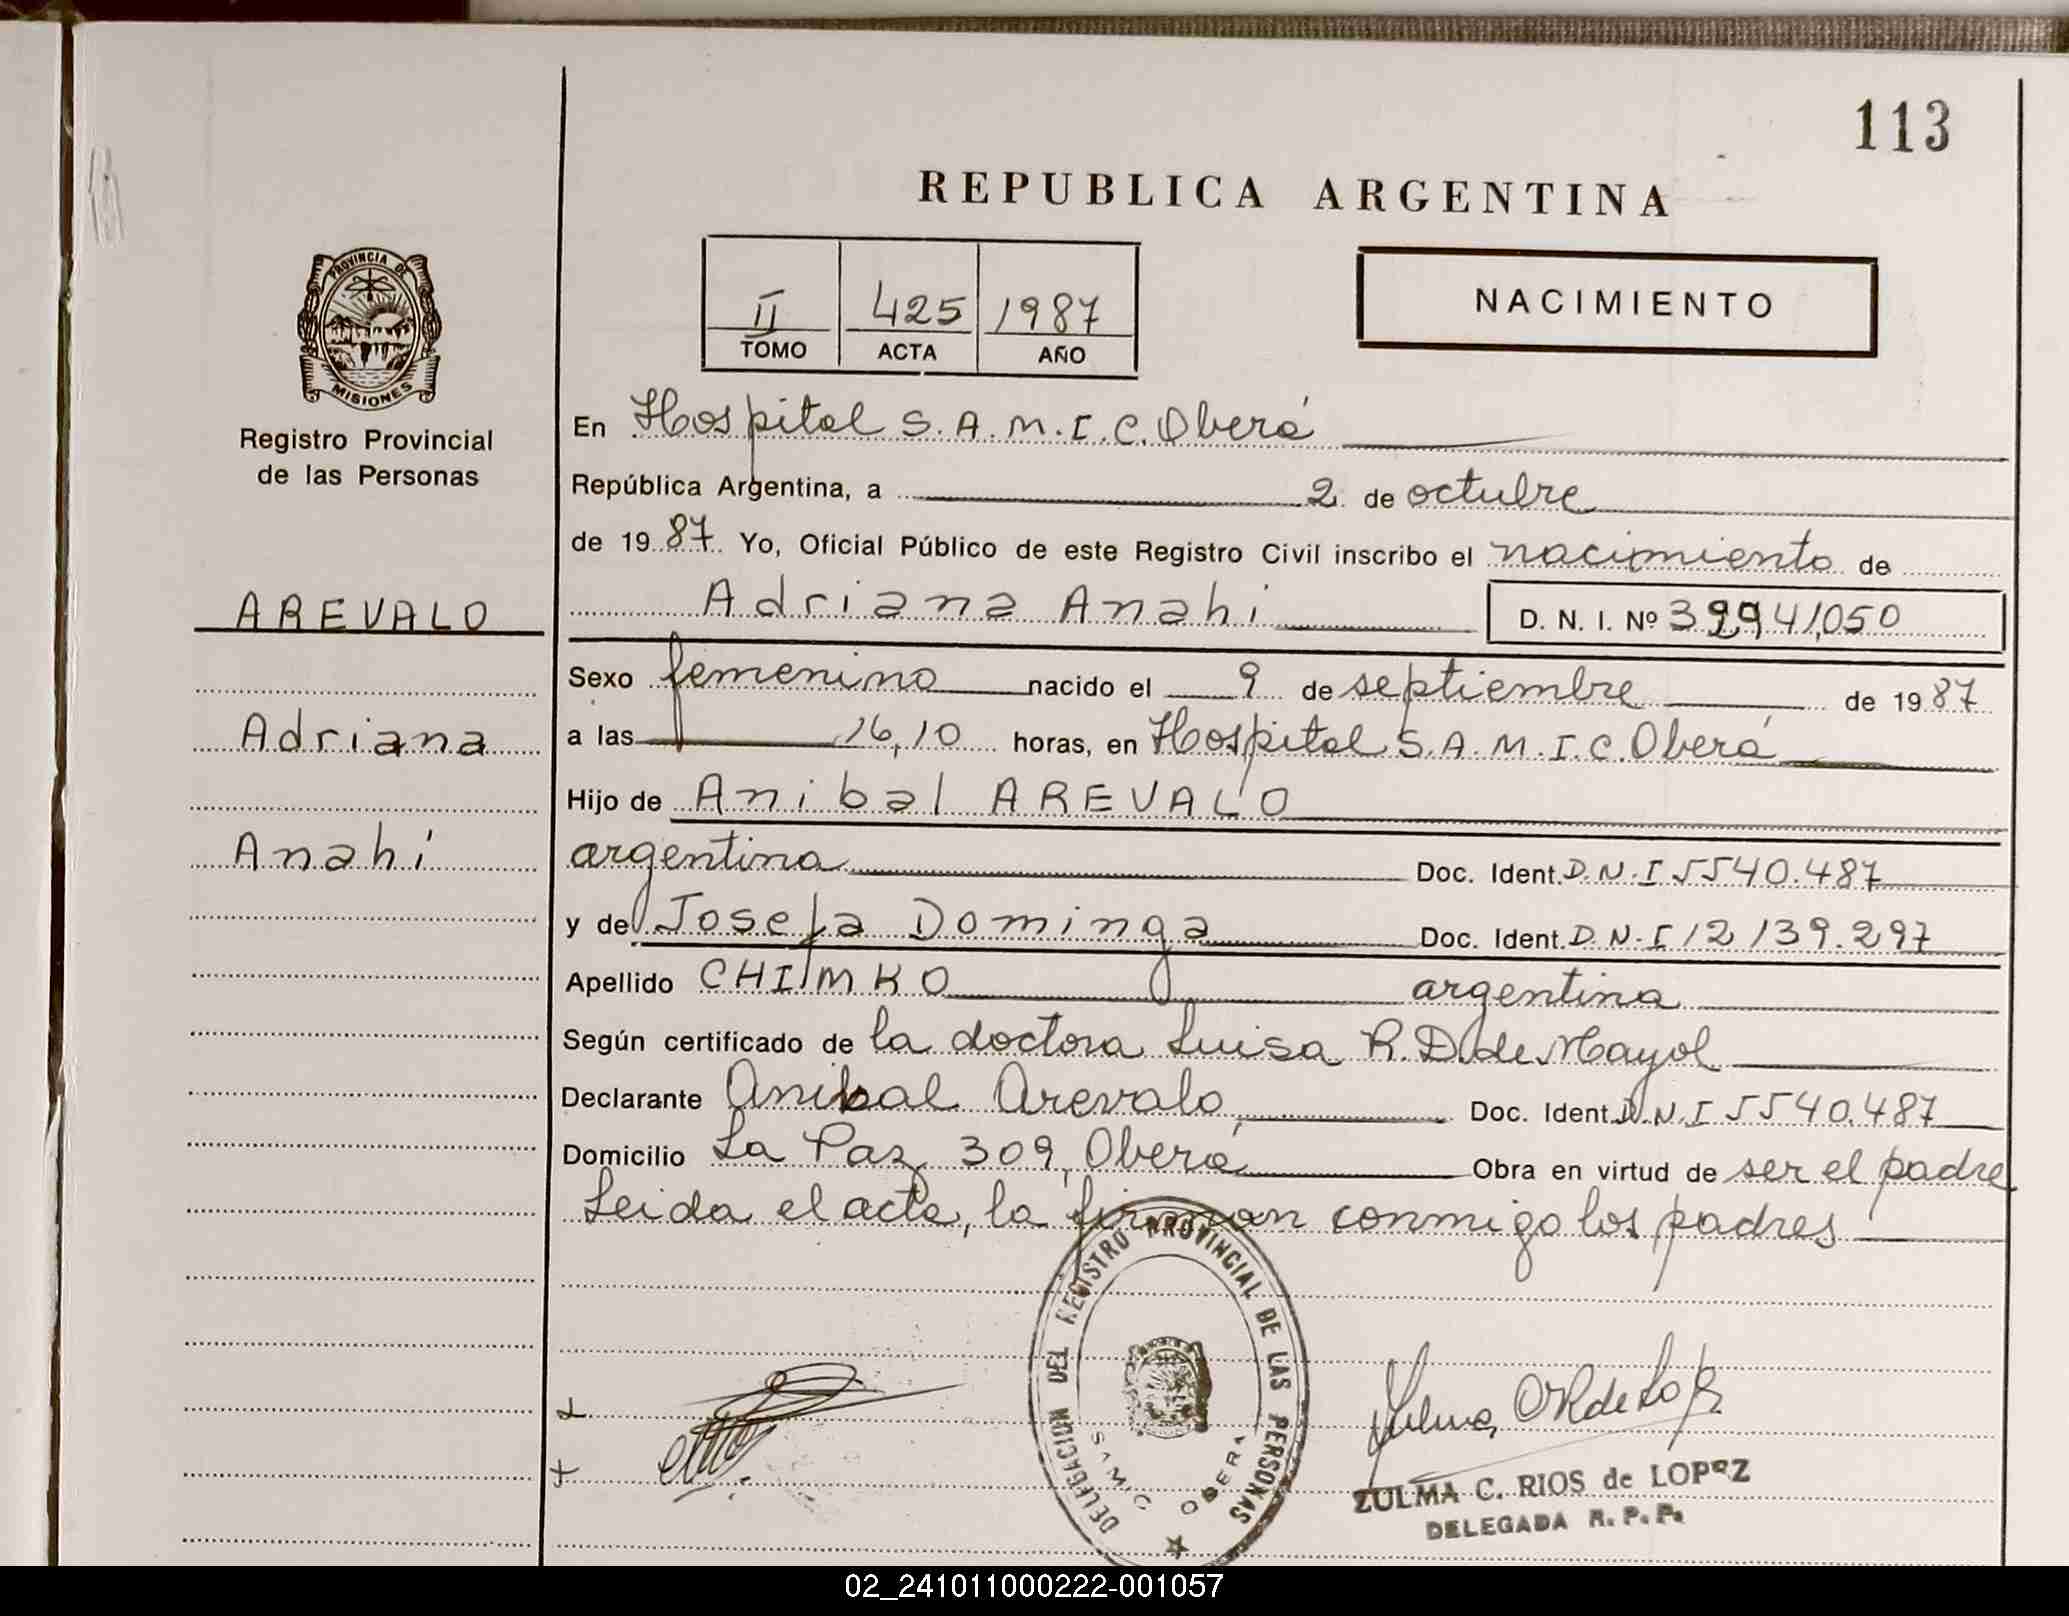 113
REPUBLICA ARGENTINA
PROVINCIA DE
MISIONES
Registro Provincial
de las Personas
II 425 1987
TOMO ACTA AÑO
NACIMIENTO
En Hospital S.A.M.I.C. Oberá
República Argentina, a 2 de octubre
de 1987. Yo, Oficial Público de este Registro Civil inscribo el nacimiento de
AREVALO
Adriana Anahí
D. N. I. Nº 39941,050
Sexo femenino nacido el 9 de septiembre de 1987
Adriana
a las 16,10 horas, en Hospital S.A.M.I.C. Oberá
Hijo de Anibal AREVALO
Anahí
argentina Doc. Ident. D.N.I 5540.487
y de Josefa Dominga Doc. Ident. D.N.I 12139.297
Apellido CHIMKO argentina
Según certificado de la doctora Luisa R. D. de Mayol
Declarante Anibal Arevalo Doc. Ident. D.N.I 5540.487
Domicilio La Paz 309, Oberá Obra en virtud de ser el padre
Leida el acta, la firman conmigo los padres
DELEGACION DEL REGISTRO PROVINCIAL DE LAS PERSONAS
SAMIC OBERA
ZULMA C. RIOS de LOPEZ
DELEGADA R. P. P.
02_241011000222-001057